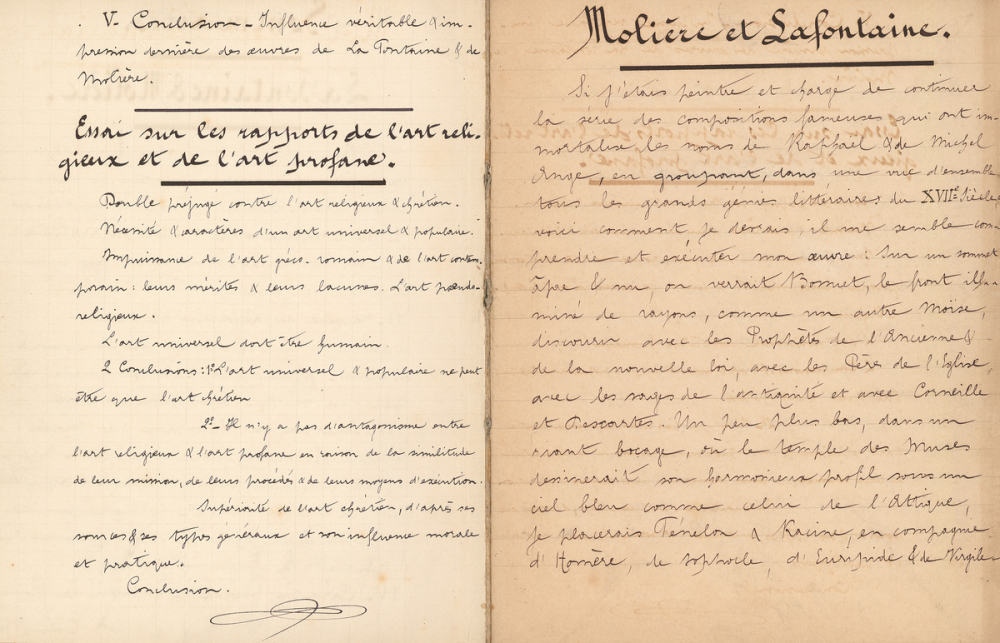 V- Conclusion - Influence véritable & im-
pression dernière des œuvres de La Fontaine & de
Molière.
Essai sur les rapports de l'art reli-
gieux et de l'art profane.
Double préjugé contre l'art religieux & chrétien.
Nécessité & caractères d'un art universel & populaire.
Impuissance de l'art gréco-romain & de l'art contem-
porain : leurs mérites & leurs lacunes. L'art pseudo-
religieux.
L'art universel doit être humain.
2 Conclusions : 1º L'art universel & populaire ne peut
être que l'art chrétien
2º- Il n'y a pas d'antagonisme entre
l'art religieux & l'art profane en raison de la similitude
de leur mission, de leurs procédés & de leurs moyens d'exécution.
Supériorité de l'art chrétien, d'après ses
sources & ses types généraux et son influence morale
et pratique.
Conclusion.
Molière et Lafontaine.
Si j'étais peintre et chargé de continuer
la série des compositions fameuses qui ont im-
mortalisé les noms de Raphaël & de Michel
Ange, en groupant, dans une vue d'ensemble
tous les grands génies littéraires du XVIIe Siècle,
voici comment je devrais, il me semble com-
prendre et exécuter mon œuvre : Sur un sommet
âpre & nu, on verrait Bossuet, le front illu-
miné de rayons, comme un autre Moïse,
discourir avec les Prophètes de l'Ancienne &
de la nouvelle loi, avec les Pères de l'Eglise,
avec les sages de l'antiquité et avec Corneille
et Descartes. Un peu plus bas, dans un
riant bocage, où le temple des Muses
dessinerait son harmonieux profil sous un
ciel bleu comme celui de l'Attique,
je placerais Fénelon & Racine, en compagnie
d'Homère, de Sophocle, d'Euripide & de Virgile